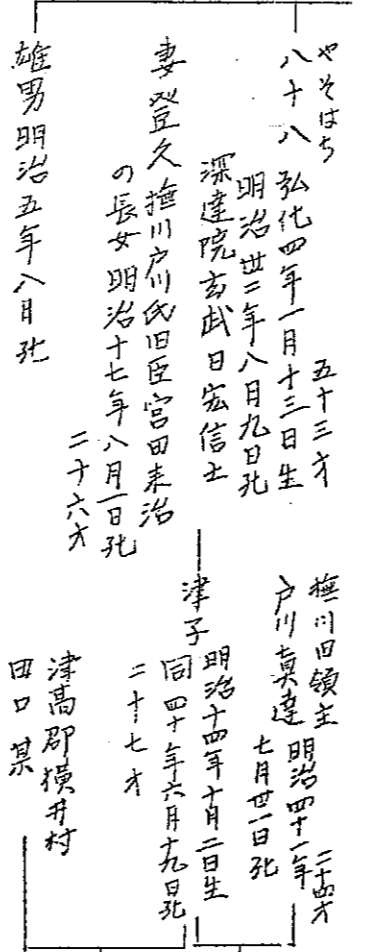 やそはち
八十八 弘化四年一月十三日生
五十三才
明治丗二年八月九日死
深達院玄武日宏信士
妻登久撫川戸川氏旧臣宮田来治
の長女明治十七年八月一日死
二十六才
雄男明治五年八月死
撫川旧領主
戸川真達 明治四十一年
二十四才
七月丗一日死
津子
明治十四年十月二日生
同四十年六月十九日死
二十七才
津高郡横井村
田口某